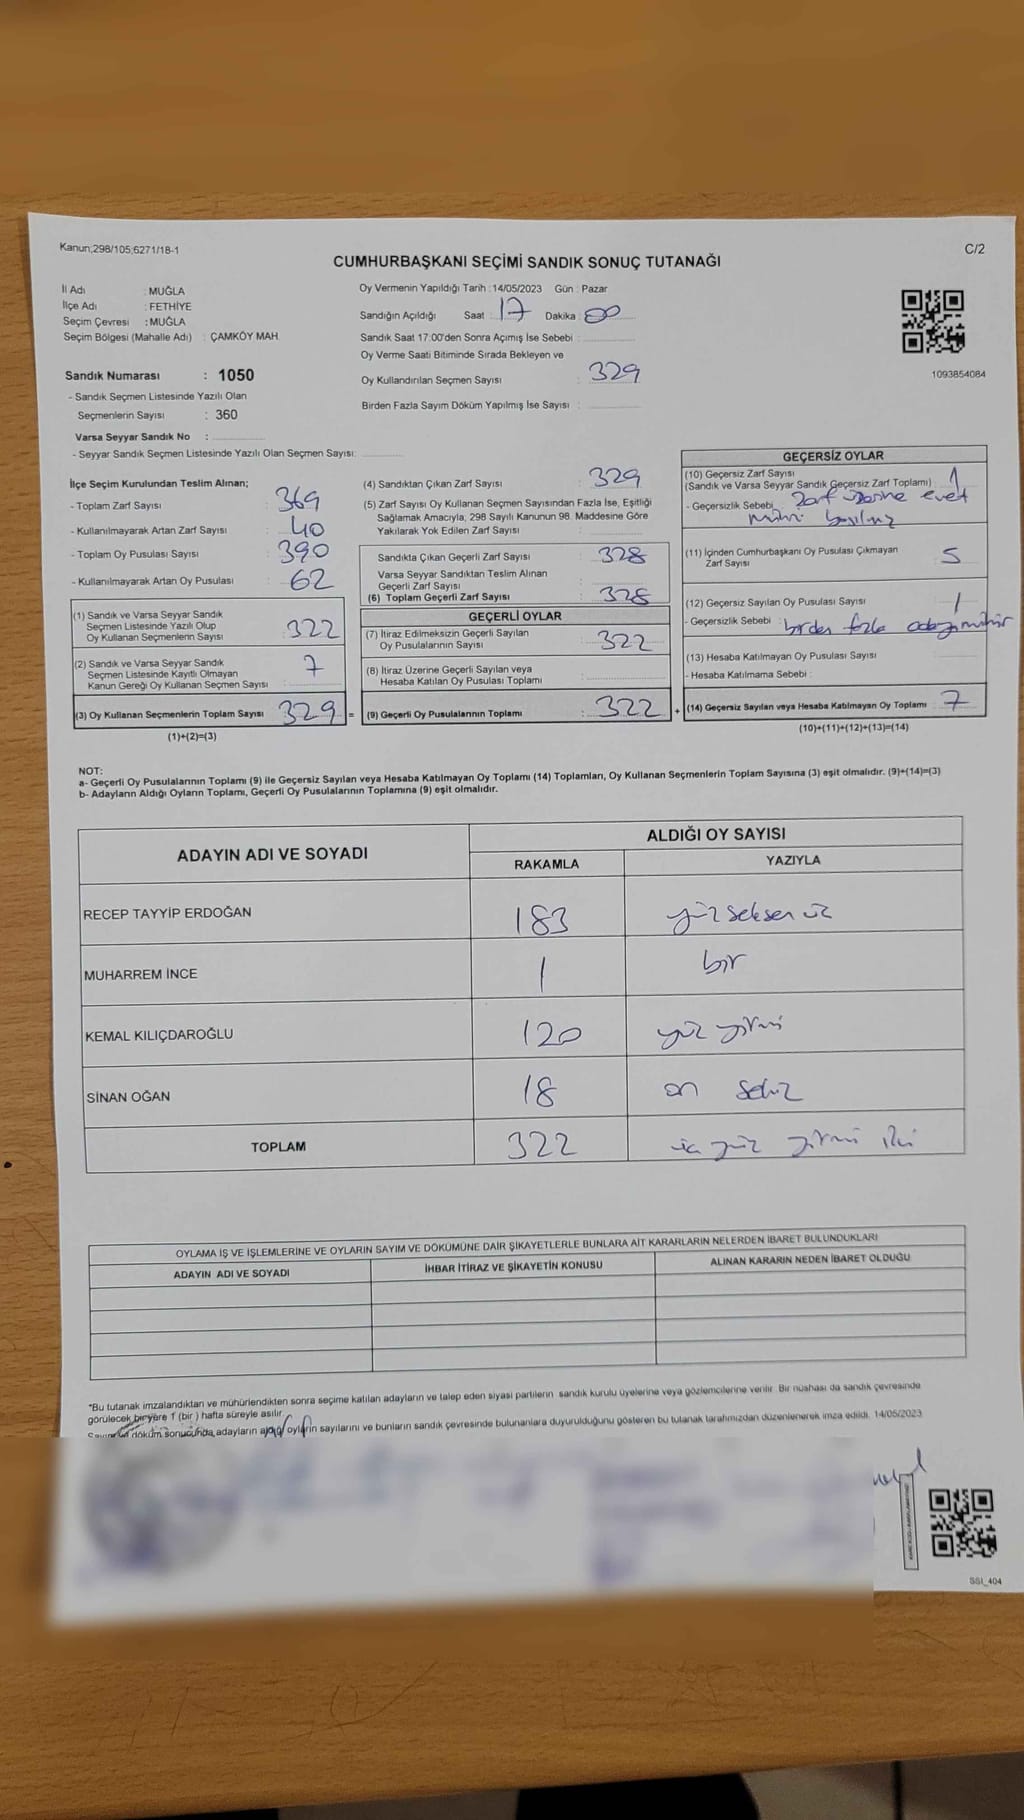 Kanun;298/105;6271/18-1
C/2
CUMHURBAŞKANI SEÇİMİ SANDIK SONUÇ TUTANAĞI
İl Adı : MUĞLA
İlçe Adı : FETHİYE
Seçim Çevresi : MUĞLA
Seçim Bölgesi (Mahalle Adı) : ÇAMKÖY MAH
Sandık Numarası : 1050
- Sandık Seçmen Listesinde Yazılı Olan
Seçmenlerin Sayısı : 360
Varsa Seyyar Sandık No :
- Seyyar Sandık Seçmen Listesinde Yazılı Olan Seçmen Sayısı:
Oy Vermenin Yapıldığı Tarih : 14/05/2023 Gün : Pazar
Sandığın Açıldığı Saat : 17 Dakika : 00
Sandık Saat 17:00'den Sonra Açımış İse Sebebi :
Oy Verme Saati Bitiminde Sırada Bekleyen ve
Oy Kullandırılan Seçmen Sayısı : 329
Birden Fazla Sayım Döküm Yapılmış İse Sayısı :
1093854084
İlçe Seçim Kurulundan Teslim Alınan;
- Toplam Zarf Sayısı : 369
- Kullanılmayarak Artan Zarf Sayısı : 40
- Toplam Oy Pusulası Sayısı : 390
- Kullanılmayarak Artan Oy Pusulası : 62
(1) Sandık ve Varsa Seyyar Sandık
Seçmen Listesinde Yazılı Olup
Oy Kullanan Seçmenlerin Sayısı : 322
(2) Sandık ve Varsa Seyyar Sandık
Seçmen Listesinde Kayıtlı Olmayan
Kanun Gereği Oy Kullanan Seçmen Sayısı : 7
(3) Oy Kullanan Seçmenlerin Toplam Sayısı : 329 =
(1)+(2)=(3)
(4) Sandıktan Çıkan Zarf Sayısı : 329
(5) Zarf Sayısı Oy Kullanan Seçmen Sayısından Fazla İse, Eşitliği
Sağlamak Amacıyla, 298 Sayılı Kanunun 98. Maddesine Göre
Yakılarak Yok Edilen Zarf Sayısı :
Sandıkta Çıkan Geçerli Zarf Sayısı : 328
Varsa Seyyar Sandıktan Teslim Alınan
Geçerli Zarf Sayısı :
(6) Toplam Geçerli Zarf Sayısı : 328
GEÇERLİ OYLAR
(7) İtiraz Edilmeksizin Geçerli Sayılan
Oy Pusulalarının Sayısı : 322
(8) İtiraz Üzerine Geçerli Sayılan veya
Hesaba Katılan Oy Pusulası Toplamı :
(9) Geçerli Oy Pusulalarının Toplamı : 322 +
GEÇERSİZ OYLAR
(10) Geçersiz Zarf Sayısı
(Sandık ve Varsa Seyyar Sandık Geçersiz Zarf Toplamı) 1
- Geçersizlik Sebebi : Zarf üzerine evet
mührü basılmış
(11) İçinden Cumhurbaşkanı Oy Pusulası Çıkmayan
Zarf Sayısı 5
(12) Geçersiz Sayılan Oy Pusulası Sayısı : 1
- Geçersizlik Sebebi : birden fazla adaya mühür
(13) Hesaba Katılmayan Oy Pusulası Sayısı
- Hesaba Katılmama Sebebi :
(14) Geçersiz Sayılan veya Hesaba Katılmayan Oy Toplamı 7
(10)+(11)+(12)+(13)=(14)
NOT:
a- Geçerli Oy Pusulalarının Toplamı (9) ile Geçersiz Sayılan veya Hesaba Katılmayan Oy Toplamı (14) Toplamları, Oy Kullanan Seçmenlerin Toplam Sayısına (3) eşit olmalıdır. (9)+(14)=(3)
b- Adayların Aldığı Oyların Toplamı, Geçerli Oy Pusulalarının Toplamına (9) eşit olmalıdır.
ADAYIN ADI VE SOYADI
ALDIĞI OY SAYISI
RAKAMLA YAZIYLA
RECEP TAYYİP ERDOĞAN 183 yüz seksen üç
MUHARREM İNCE 1 bir
KEMAL KILIÇDAROĞLU 120 yüz yirmi
SİNAN OĞAN 18 on sekiz
TOPLAM 322 üç yüz yirmi iki
OYLAMA İŞ VE İŞLEMLERİNE VE OYLARIN SAYIM VE DÖKÜMÜNE DAİR ŞİKAYETLERLE BUNLARA AİT KARARLARIN NELERDEN İBARET BULUNDUKLARI
ADAYIN ADI VE SOYADI İHBAR İTİRAZ VE ŞİKAYETİN KONUSU ALINAN KARARIN NEDEN İBARET OLDUĞU
*Bu tutanak imzalandıktan ve mühürlendikten sonra seçime katılan adayların ve talep eden siyasi partilerin sandık kurulu üyelerine veya gözlemcilerine verilir. Bir nüshası da sandık çevresinde
görülecek bir yere 1 (bir ) hafta süreyle asılır.
döküm sonucunda adayların aldığı oyların sayılarını ve bunların sandık çevresinde bulunanlara duyurulduğunu gösteren bu tutanak tarafımızdan düzenlenerek imza edildi. 14/05/2023
SSI_404